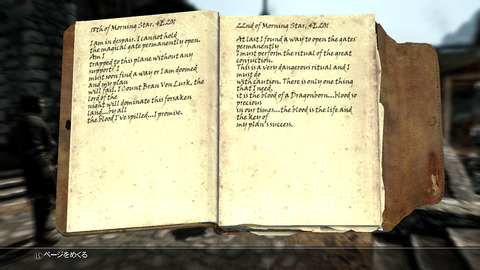 18th of Morning Star, 4E201
I am in despair. I cannot hold
the magical gate permanently open.
Am I
trapped to this plane without any
support? I
must soon find a way or I am doomed
and my plan
will fail. I Count Bran Von Lurk, the
lord of the
night will dominate this forsaken
land...by all
the blood I've spilled...I promise.
22nd of Morning Star, 4E201
At last I found a way to open the gates
permanently
I must perform the ritual of the great
conjuction.
This is a very dangerous ritual and I
must do
with caution. There is only one thing
that I need,
it is the blood of a Dragonborn...blood so
precious
in our times...the blood is the life and
the key of
my plan's success.
ページをめくる